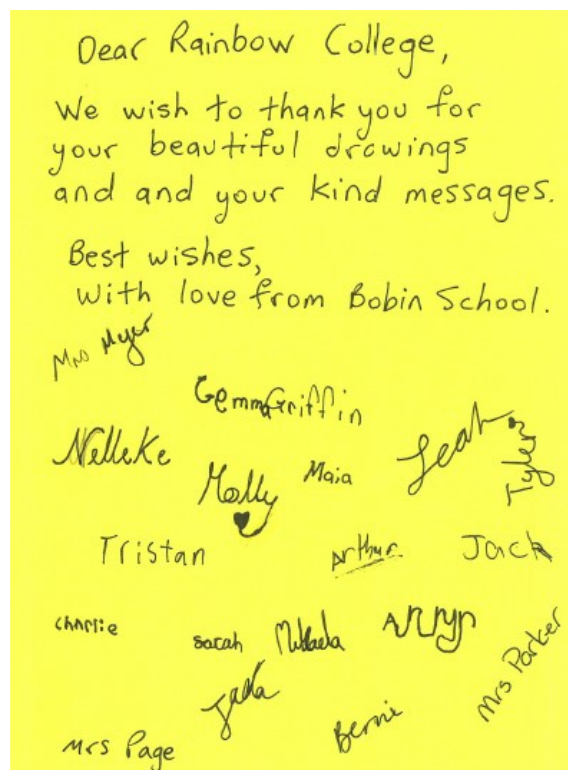 Dear Rainbow College,
We wish to thank you for
your beautiful drawings
and and your kind messages.
Best wishes,
With love from Bobin School.
Mrs Myer
Gemma Griffin
Nelleke
Molly
Maia
Leah
Tyler
Tristan
Arthur
Jack
Charlie
Sarah
Mikaela
Jada
Bernie
Mrs Parker
Mrs Page